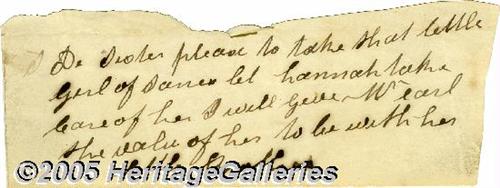 De Sister please to take that little
girl of Sanes let hannah take
Care of her I will give Mr Carl
the value of her to be with her
©2005 HeritageGalleries